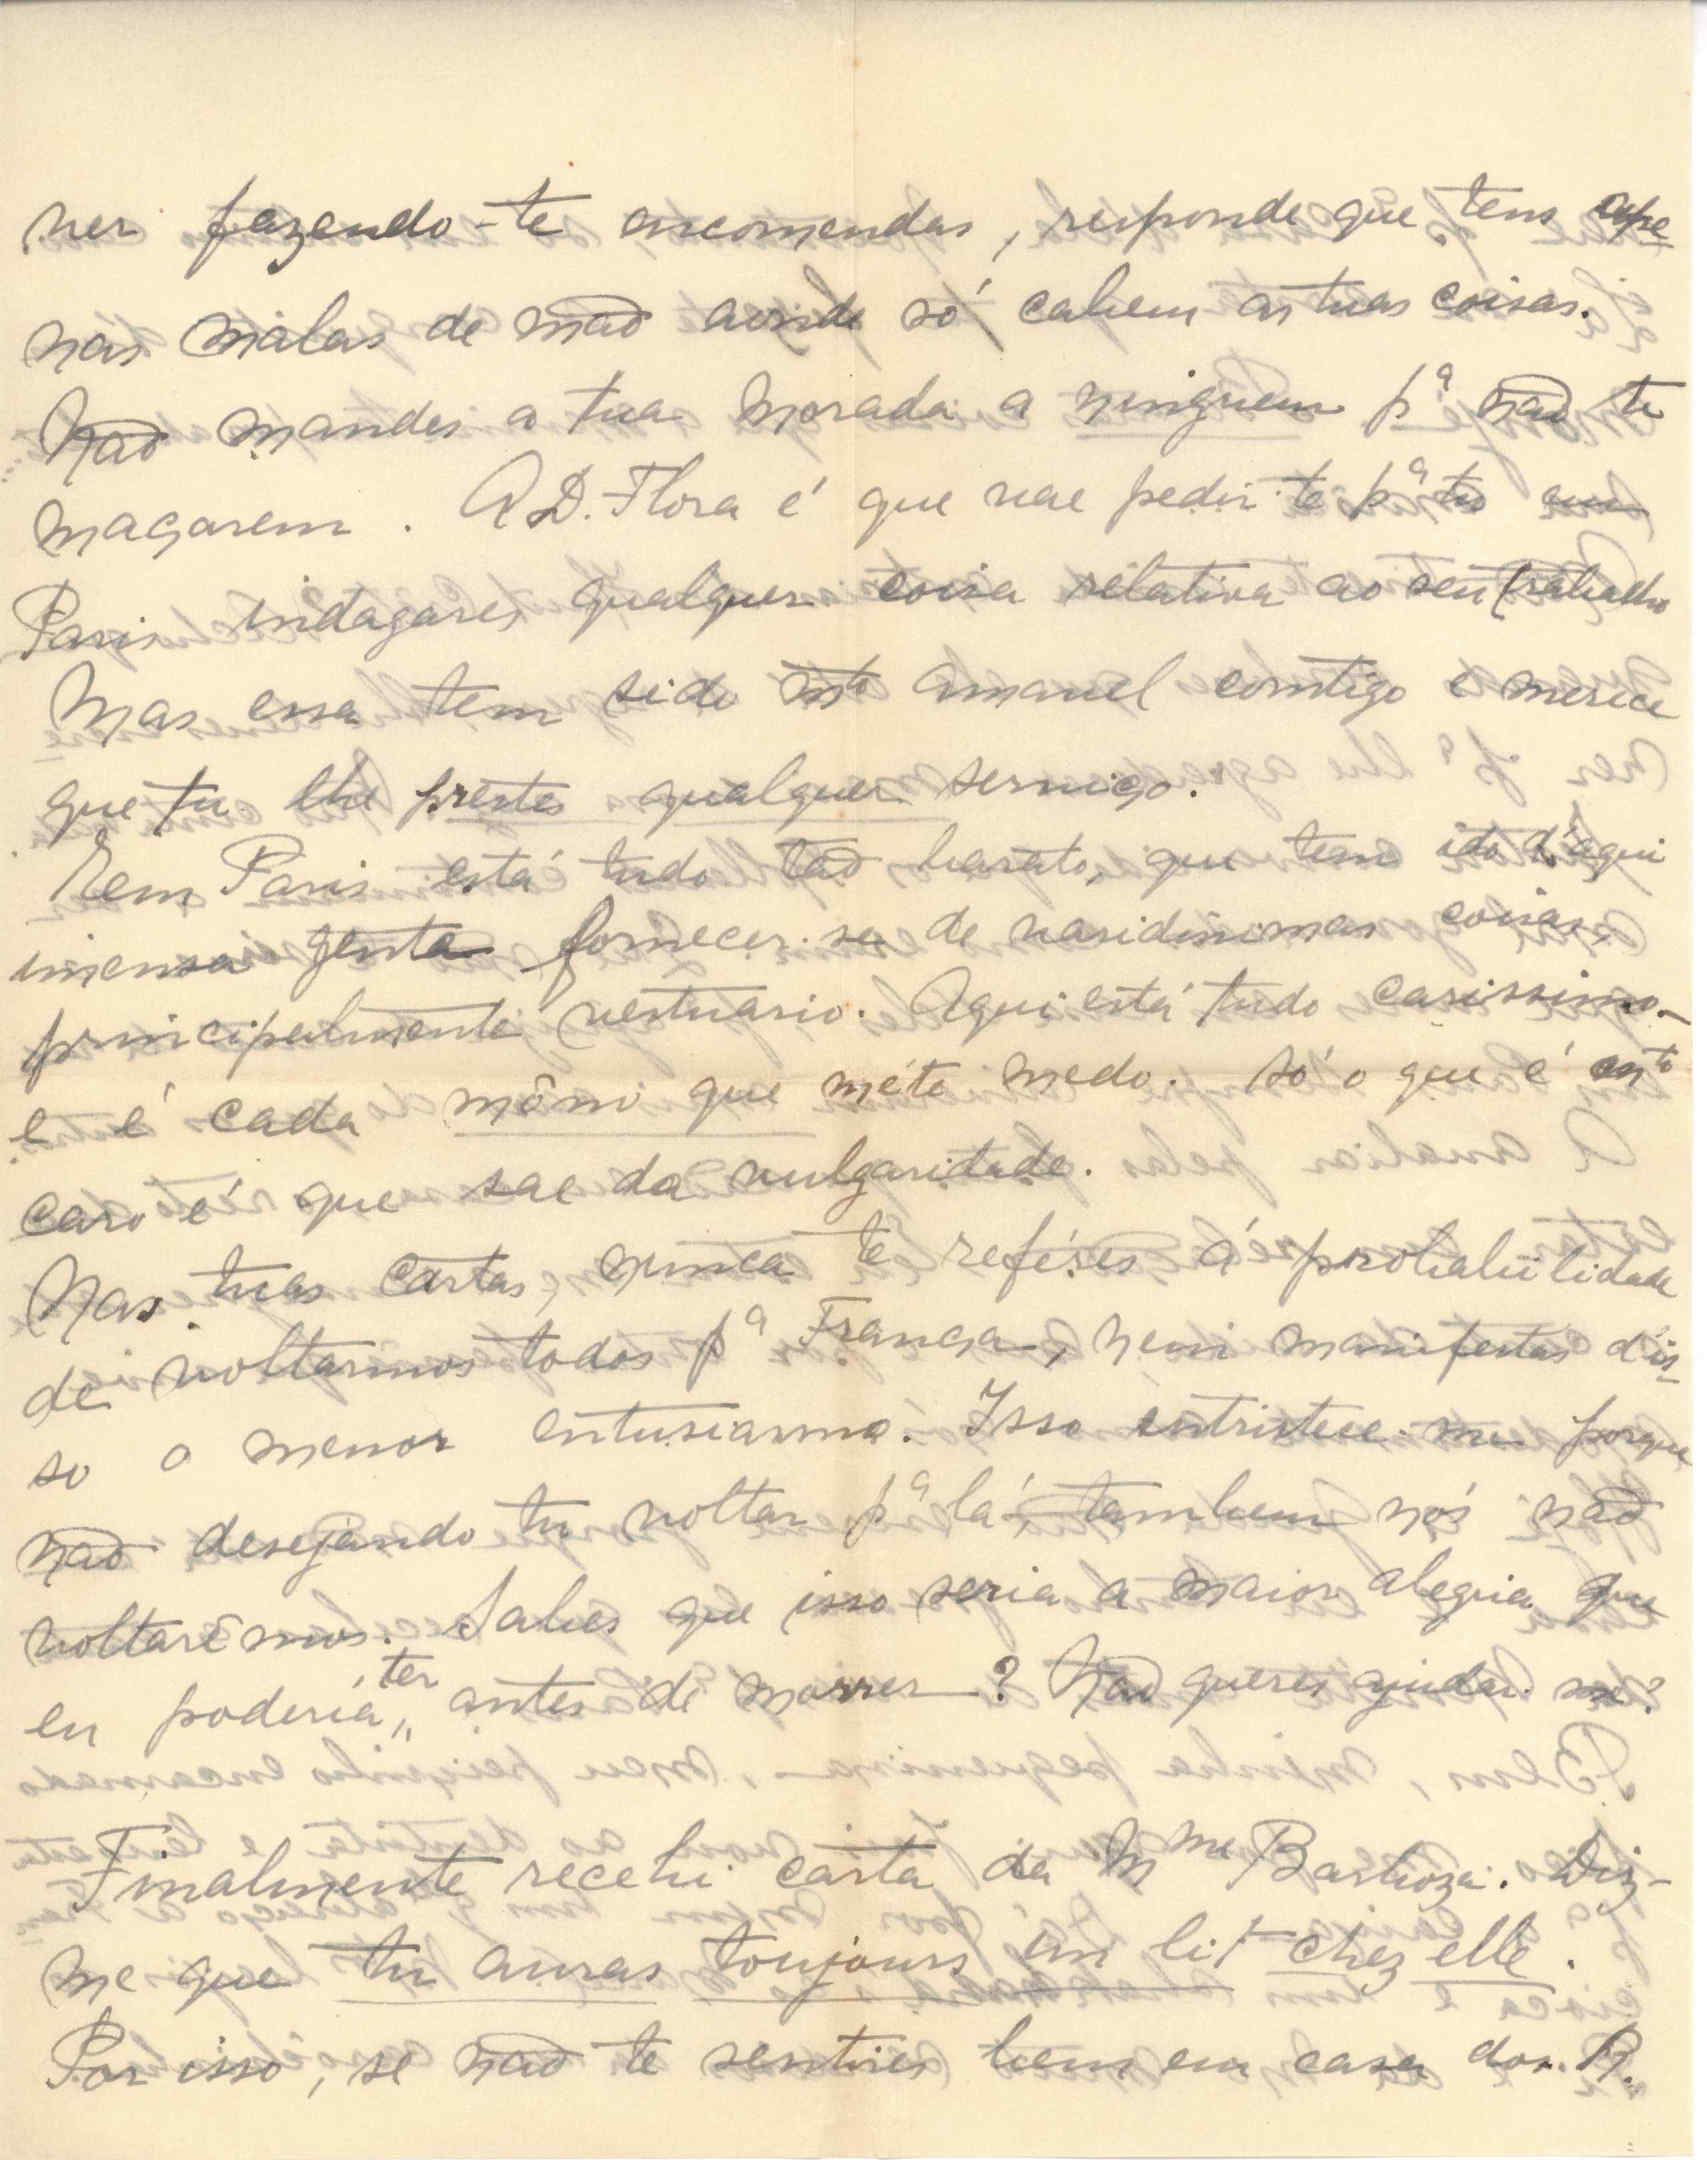 ver fazendo-te encomendas, responde que tens ape
nas malas de mão aonde só cabem as tuas coisas.
Não mandes a tua morada a ninguem pª não te
maçarem. A D. Flora é que vae pedir-te pª tu em
Paris indagares qualquer coisa relativa ao seu trabalho
Mas essa tem sido mto amavel comtigo e merece
que tu lhe prestes qualquer serviço.
Em Paris está tudo tão barato, que tem ido d'aqui
imensa gente fornecer-se de varidissimas coisas,
principalmente vestuario. Aqui está tudo carissimo-
e é cada môno que méte medo. Só o que é mto
caro é que sae da vulgaridade.
Nas tuas cartas, nunca te reféres á probabilidade
de voltarmos todos pª França, nem manifestas d'is-
so o menor entusiasmo. Isso entristece-me porque,
não desejando tu voltar pª lá, tambem nós não
voltarêmos. Sabes que isso seria a maior alegria que
eu poderia ter antes de morrer? Não queres ajudar-me?
Finalmente recebi carta da Mme Barboza. Diz-
me que tu auras toujours un lit chez elle.
Por isso, se não te sentires bem em casa dos R.